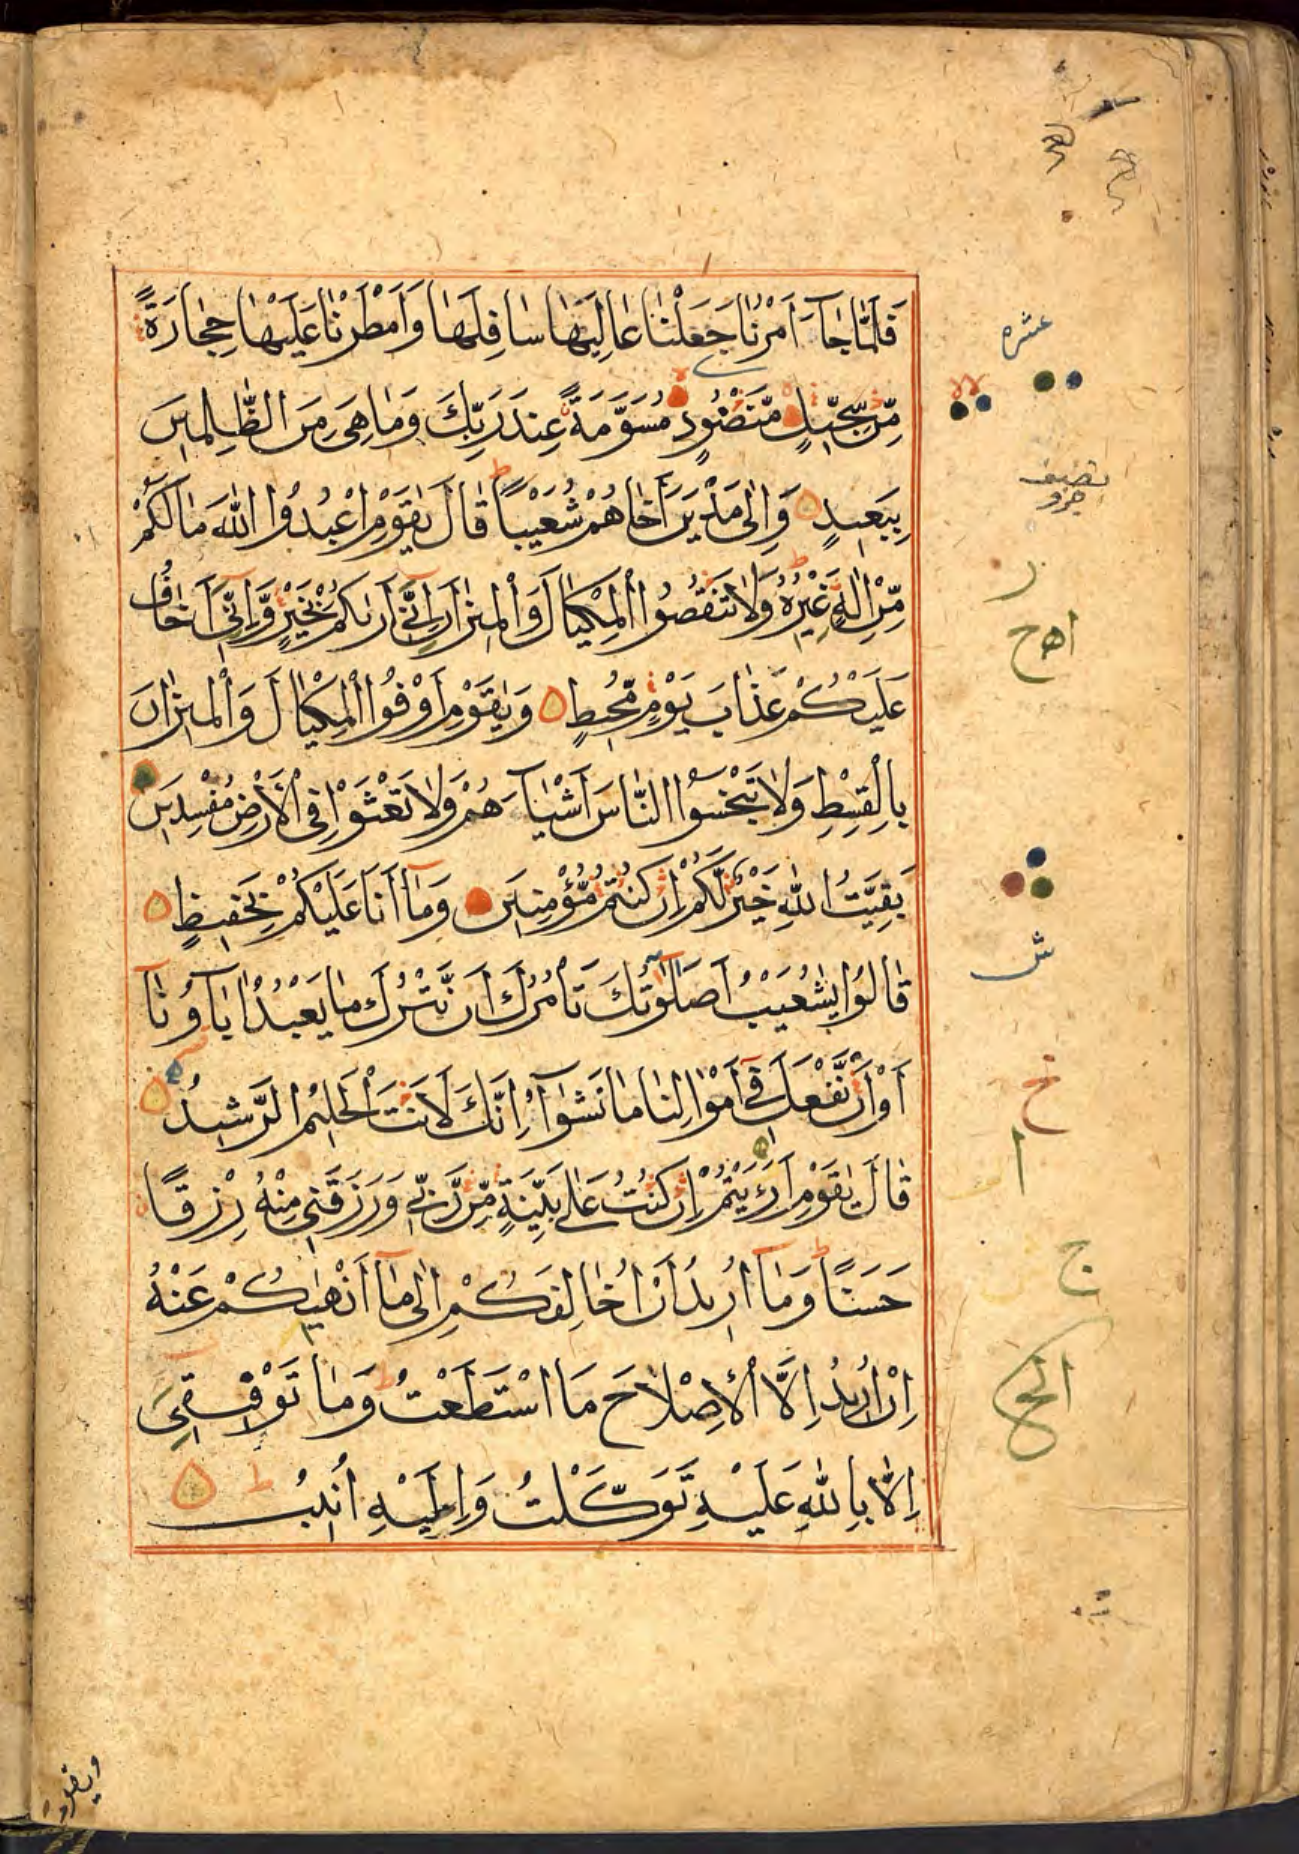 فَلَمَّا جَآءَ اَمْرُنَا جَعَلْنَا عَالِيَهَا سَافِلَهَا وَاَمْطَرْنَا عَلَيْهَا حِجَارَةً
مِّنْ سِجِّيْلٍ مَّنْضُوْدٍ مُسَوَّمَةً عِنْدَ رَبِّكَ وَمَا هِيَ مِنَ الظّٰلِمِيْنَ
بِبَعِيْدٍ وَاِلٰى مَدْيَنَ اَخَاهُمْ شُعَيْبًا قَالَ يٰقَوْمِ اعْبُدُوا اللّٰهَ مَا لَكُمْ
مِّنْ اِلٰهٍ غَيْرُهٗ وَلَا تَنْقُصُوا الْمِكْيَالَ وَالْمِيْزَانَ اِنِّيْٓ اَرٰىكُمْ بِخَيْرٍ وَّاِنِّيْٓ اَخَافُ
عَلَيْكُمْ عَذَابَ يَوْمٍ مُّحِيْطٍ وَيٰقَوْمِ اَوْفُوا الْمِكْيَالَ وَالْمِيْزَانَ
بِالْقِسْطِ وَلَا تَبْخَسُوا النَّاسَ اَشْيَآءَهُمْ وَلَا تَعْثَوْا فِى الْاَرْضِ مُفْسِدِيْنَ
بَقِيَّتُ اللّٰهِ خَيْرٌ لَّكُمْ اِنْ كُنْتُمْ مُّؤْمِنِيْنَ وَمَآ اَنَا عَلَيْكُمْ بِحَفِيْظٍ
قَالُوْا يٰشُعَيْبُ اَصَلٰوتُكَ تَاْمُرُكَ اَنْ نَّتْرُكَ مَا يَعْبُدُ اٰبَآؤُنَآ
اَوْ اَنْ نَّفْعَلَ فِيْٓ اَمْوَالِنَا مَا نَشٰٓؤُا اِنَّكَ لَاَنْتَ الْحَلِيْمُ الرَّشِيْدُ
قَالَ يٰقَوْمِ اَرَءَيْتُمْ اِنْ كُنْتُ عَلٰى بَيِّنَةٍ مِّنْ رَّبِّيْ وَرَزَقَنِيْ مِنْهُ رِزْقًا
حَسَنًا وَمَآ اُرِيْدُ اَنْ اُخَالِفَكُمْ اِلٰى مَآ اَنْهٰىكُمْ عَنْهُ
اِنْ اُرِيْدُ اِلَّا الْاِصْلَاحَ مَا اسْتَطَعْتُ وَمَا تَوْفِيْقِيْٓ
اِلَّا بِاللّٰهِ عَلَيْهِ تَوَكَّلْتُ وَاِلَيْهِ اُنِيْبُ
عشره
نصف
جزو
ر
اهح
ش
خ
ا
ج
الحج